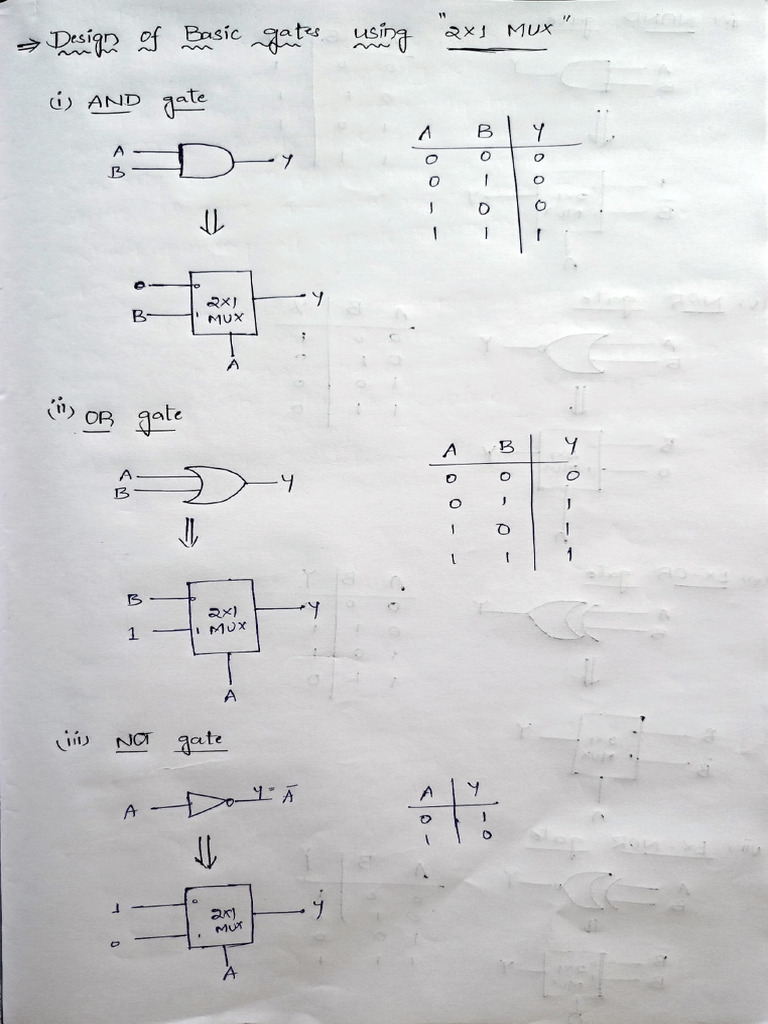 ⇒ Design of Basic gates using "2x1 MUX"
(i) AND gate
A B Y
0 0 0
0 1 0
1 0 0
1 1 1
A
B
Y
⇓
0 0 2x1 Y
B 1 MUX
A
(ii) OR gate
A B Y
0 0 0
0 1 1
1 0 1
1 1 1
A
B
Y
⇓
B 0 2x1 Y
1 1 MUX
A
(iii) NOT gate
A Y = Ā
A Y
0 1
1 0
⇓
1 0 2x1 Y
0 1 MUX
A